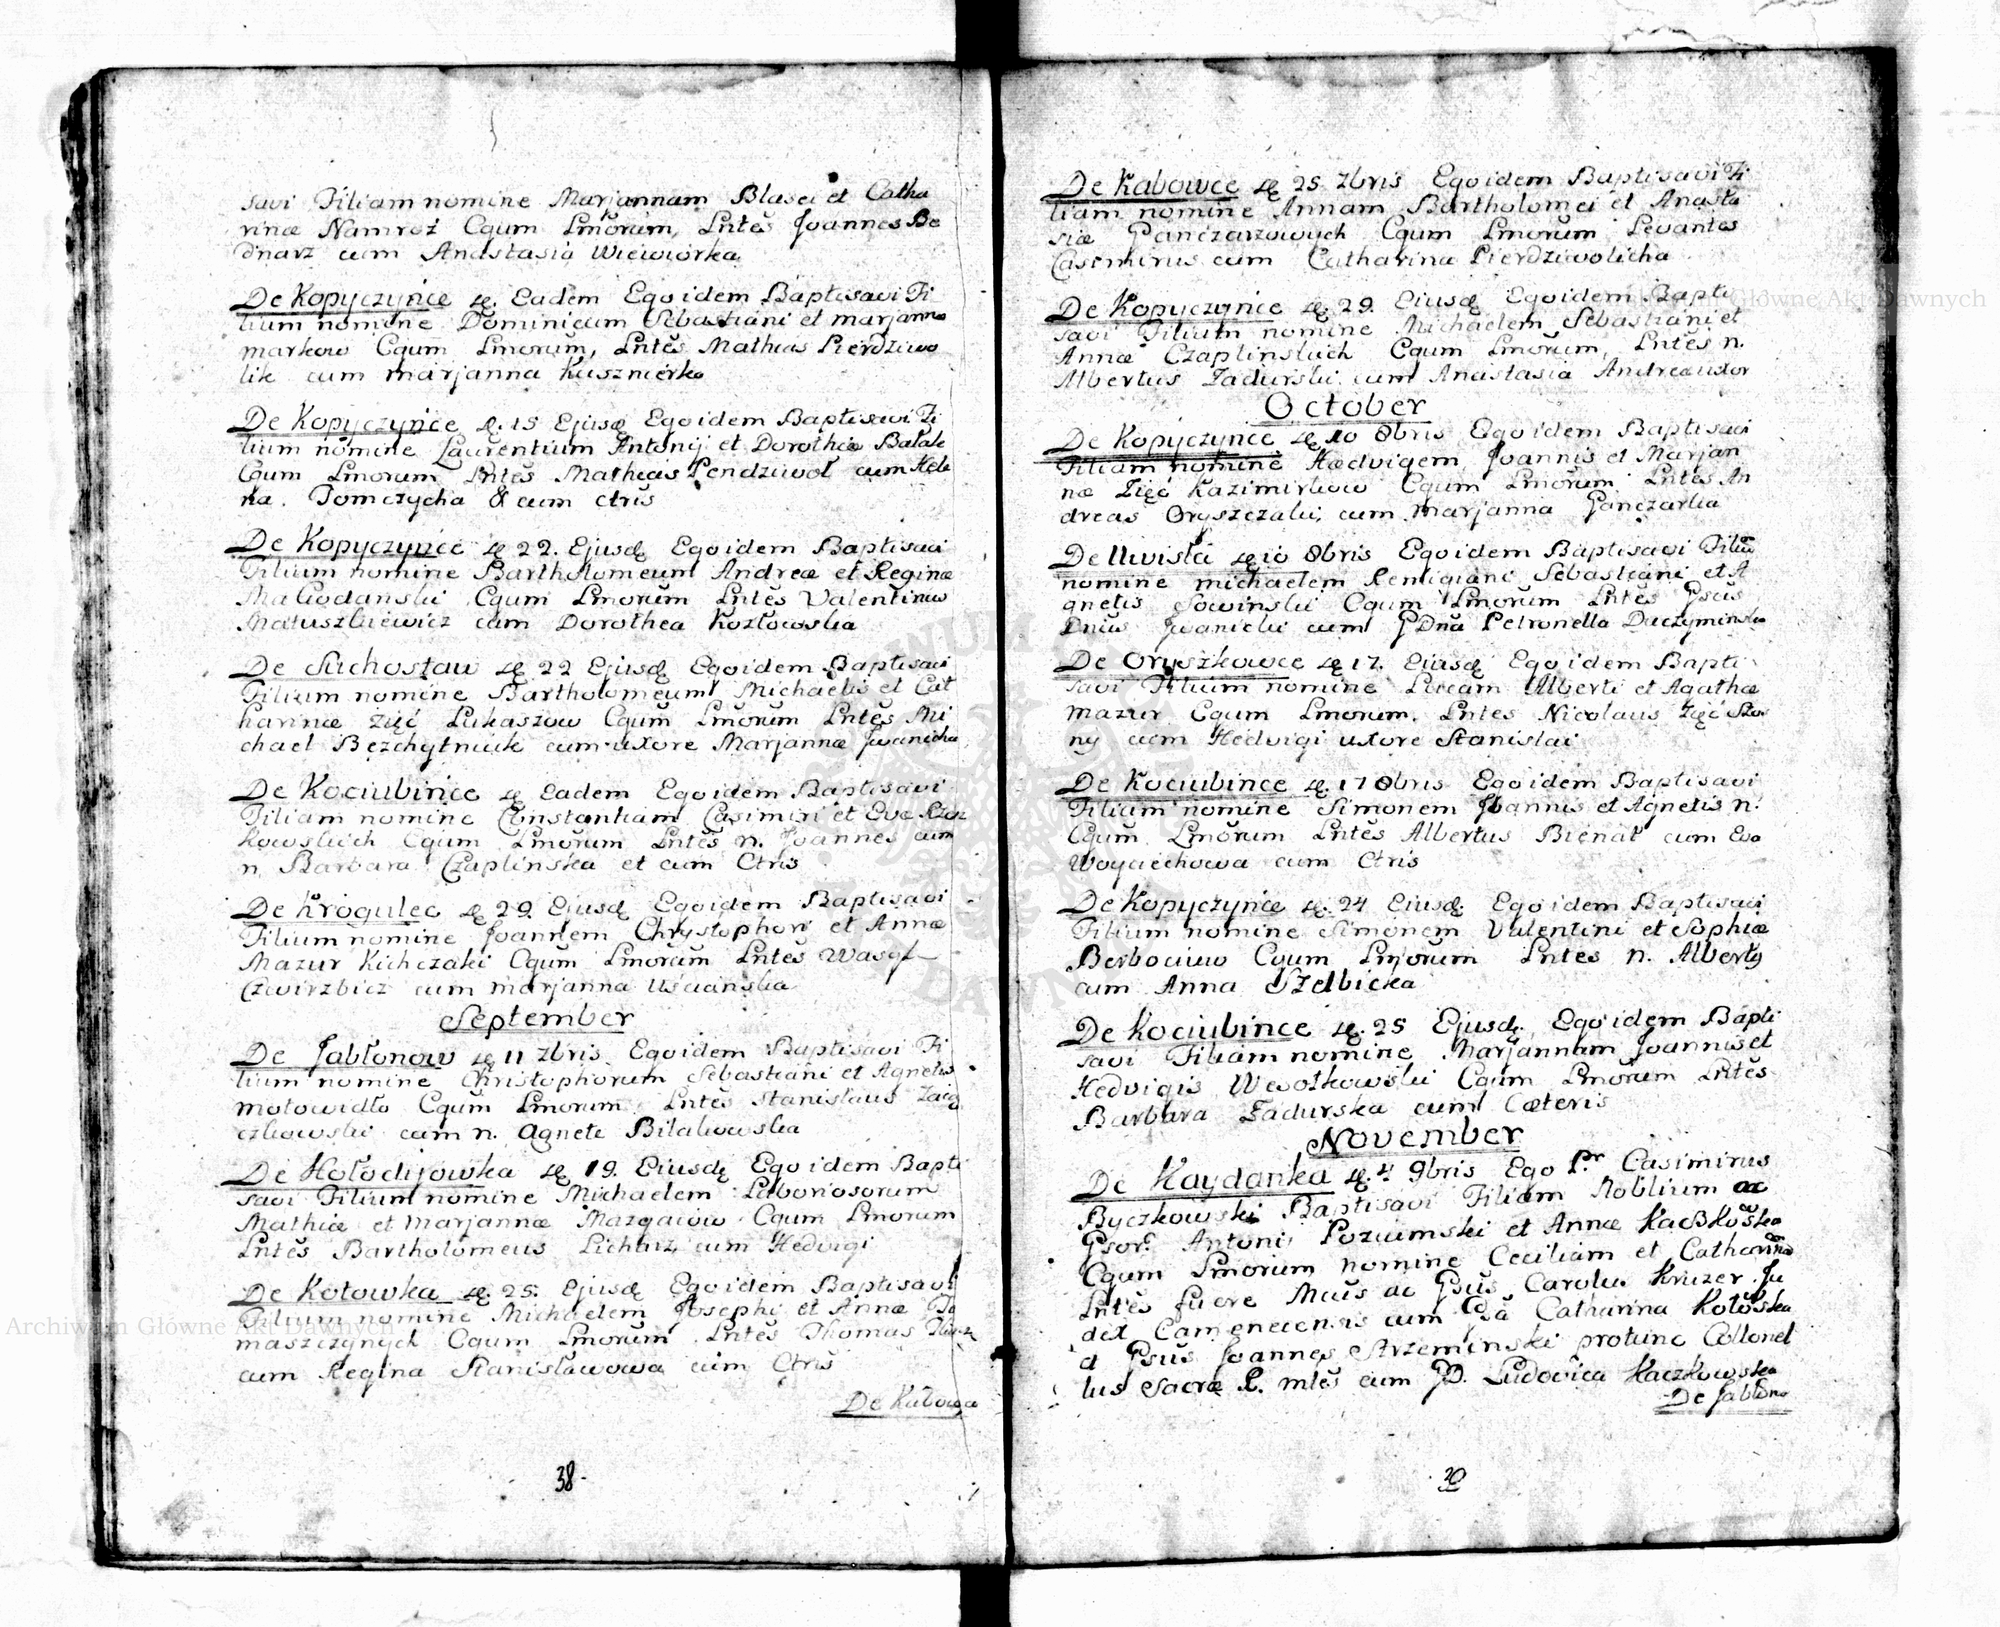 savi Filiam nomine Marjannam Blasei et Catha
rinæ Namroż Cgum Lmorum, Lntes Joannes Be
dnarz cum Anastasia Wiewiorka
De Kopyczynce Eadem Ego idem Baptisavi Fi
lium nomine Dominicum Sebastiani et marjannæ
markow Cgum Lmorum, Lntes Mathias Pierdziwo
lik cum marjanna Kusznierka
De Kopyczynce 15 Ejusd Ego idem Baptisavi Fi
lium nomine Laurentium Antonij et Dorotheæ Balak
Cgum Lmorum Lntes Matheas Pendziwol cum Hele
na Tomczycha & cum Ctris
De Kopyczynce 22. Ejusd Ego idem Baptisavi
Filium nomine Bartholomeum Andreæ et Reginæ
Cgum Lmorum Lntes Valentinus
Matuszkiewicz cum Dorothea Kozłowska
De Suchostaw 22 Ejusd Ego idem Baptisavi
Filium nomine Bartholomeum Michaelis et Cat
harinæ zięć Lukaszow Cgum Lmorum Lntes Mi
chael Bezchytniuk cum uxore Marjannæ Jwanicha
De Kociubince Eadem Ego idem Baptisavi
Filiam nomine Constantiam Casimiri et Evæ
kowskich Cgum Lmorum Lntes n. Joannes cum
n. Barbara Czaplinska et cum Ctris
De Krogulec 29. Ejusd Ego idem Baptisavi
Filium nomine Joannem Chrystophori et Annæ
Mazur Kichczaki Cgum Lmorum Lntes Wasyl
Czwirzbicz cum marjanna Usciańska
September
De Jabłonow 11 7bris Ego idem Baptisavi Fi
lium nomine Christophorum Sebastiani et Agnetis
motowidło Cgum Lmorum Lntes Stanislaus
czkowski cum n. Agnete Bilakowska
De Hołodijowka 19. Ejusd Ego idem Bapti
savi Filium nomine Michaelem Laboriosorum
Mathiæ et Marjannæ Mazgaiow Cgum Lmorum
Lntes Bartholomeus Licharz cum Hedvigi
De Kotowka 25. Ejusd Ego idem Baptisavi
Filium nomine Michaelem Josephi et Annæ To
maszczynych Cgum Lmorum Lntes Thomas
cum Regina Stanislawowa cum Ctris
De Kabowce
38
De Kabowce 25 7bris Ego idem Baptisavi Fi
liam nomine Annam Bartholomei et Anasta
siæ Ganczarzowych Cgum Lmorum Levantes
Casimirus cum Catharina Pierdziwolicha
De Kopyczynce 29. Ejusd Ego idem Bapti
savi Filium nomine Michaelem Sebastiani et
Annæ Czaplinskich Cgum Lmorum, Lntes n.
Albertus Zadurski cum Anastasia Andreæ uxor
October
De Kopyczynce 10 8bris Ego idem Baptisavi
Filiam nomine Hædvigem Joannis et Marjan
næ Zięć Kazimirkow Cgum Lmorum Lntes An
dreas Oryszczaki, cum marjanna Ganczarka
De 10 8bris Ego idem Baptisavi Filiu
nomine michaelem Remigiani Sebastiani et A
gnetis Sowinski Cgum Lmorum Lntes Gsus
Dnus Jwanicki cum GDna Petronella Duczyminska
De Oryszkowce 17. Ejusd Ego idem Bapti
savi Filium nomine Lucam Alberti et Agathæ
Mazur Cgum Lmorum. Lntes Nicolaus Zięć
ny cum Hedvigi uxore Stanislai
De Kociubince 17 8bris Ego idem Baptisavi
Filium nomine Simonem Joannis et Agnetis n.
Cgum Lmorum Lntes Albertus Bienat cum Eva
Woyciechowa cum Ctris
De Kopyczynce 24 Ejusd Ego idem Baptisavi
Filium nomine Simonem Valentini et Sophiæ
Berbociuw Cgum Lmorum Lntes n. Alberty
cum Anna Szelbicka
De Kociubince 25 Ejusd. Ego idem Bapti
savi Filiam nomine Marjannam Joannis et
Hedvigis Wesołkowski Cgum Lmorum Lntes
Barbara Zadurska cum Cæteris
November
De Kaydanka 4 9bris Ego Pr Casimirus
Byczkowski Baptisavi Filiam Noblium ac
Gsor. Antoni Poziumski et Annæ Kaczkoska
Cgum Lmorum nomine Ceciliam et Catharinam
Lntes fuere Mcus ac Gsus Carolu. Kruzer Ju
dex Camenecensis cum Gsa Catharina Kotoska
a Gsus Joannes Strzeminski protunc Collonel
lus Sacræ R. mtes cum GD. Ludovica Kaczkowska
De Jabłono
Archiwum Główne Akt Dawnych
Archiwum Główne Akt Dawnych